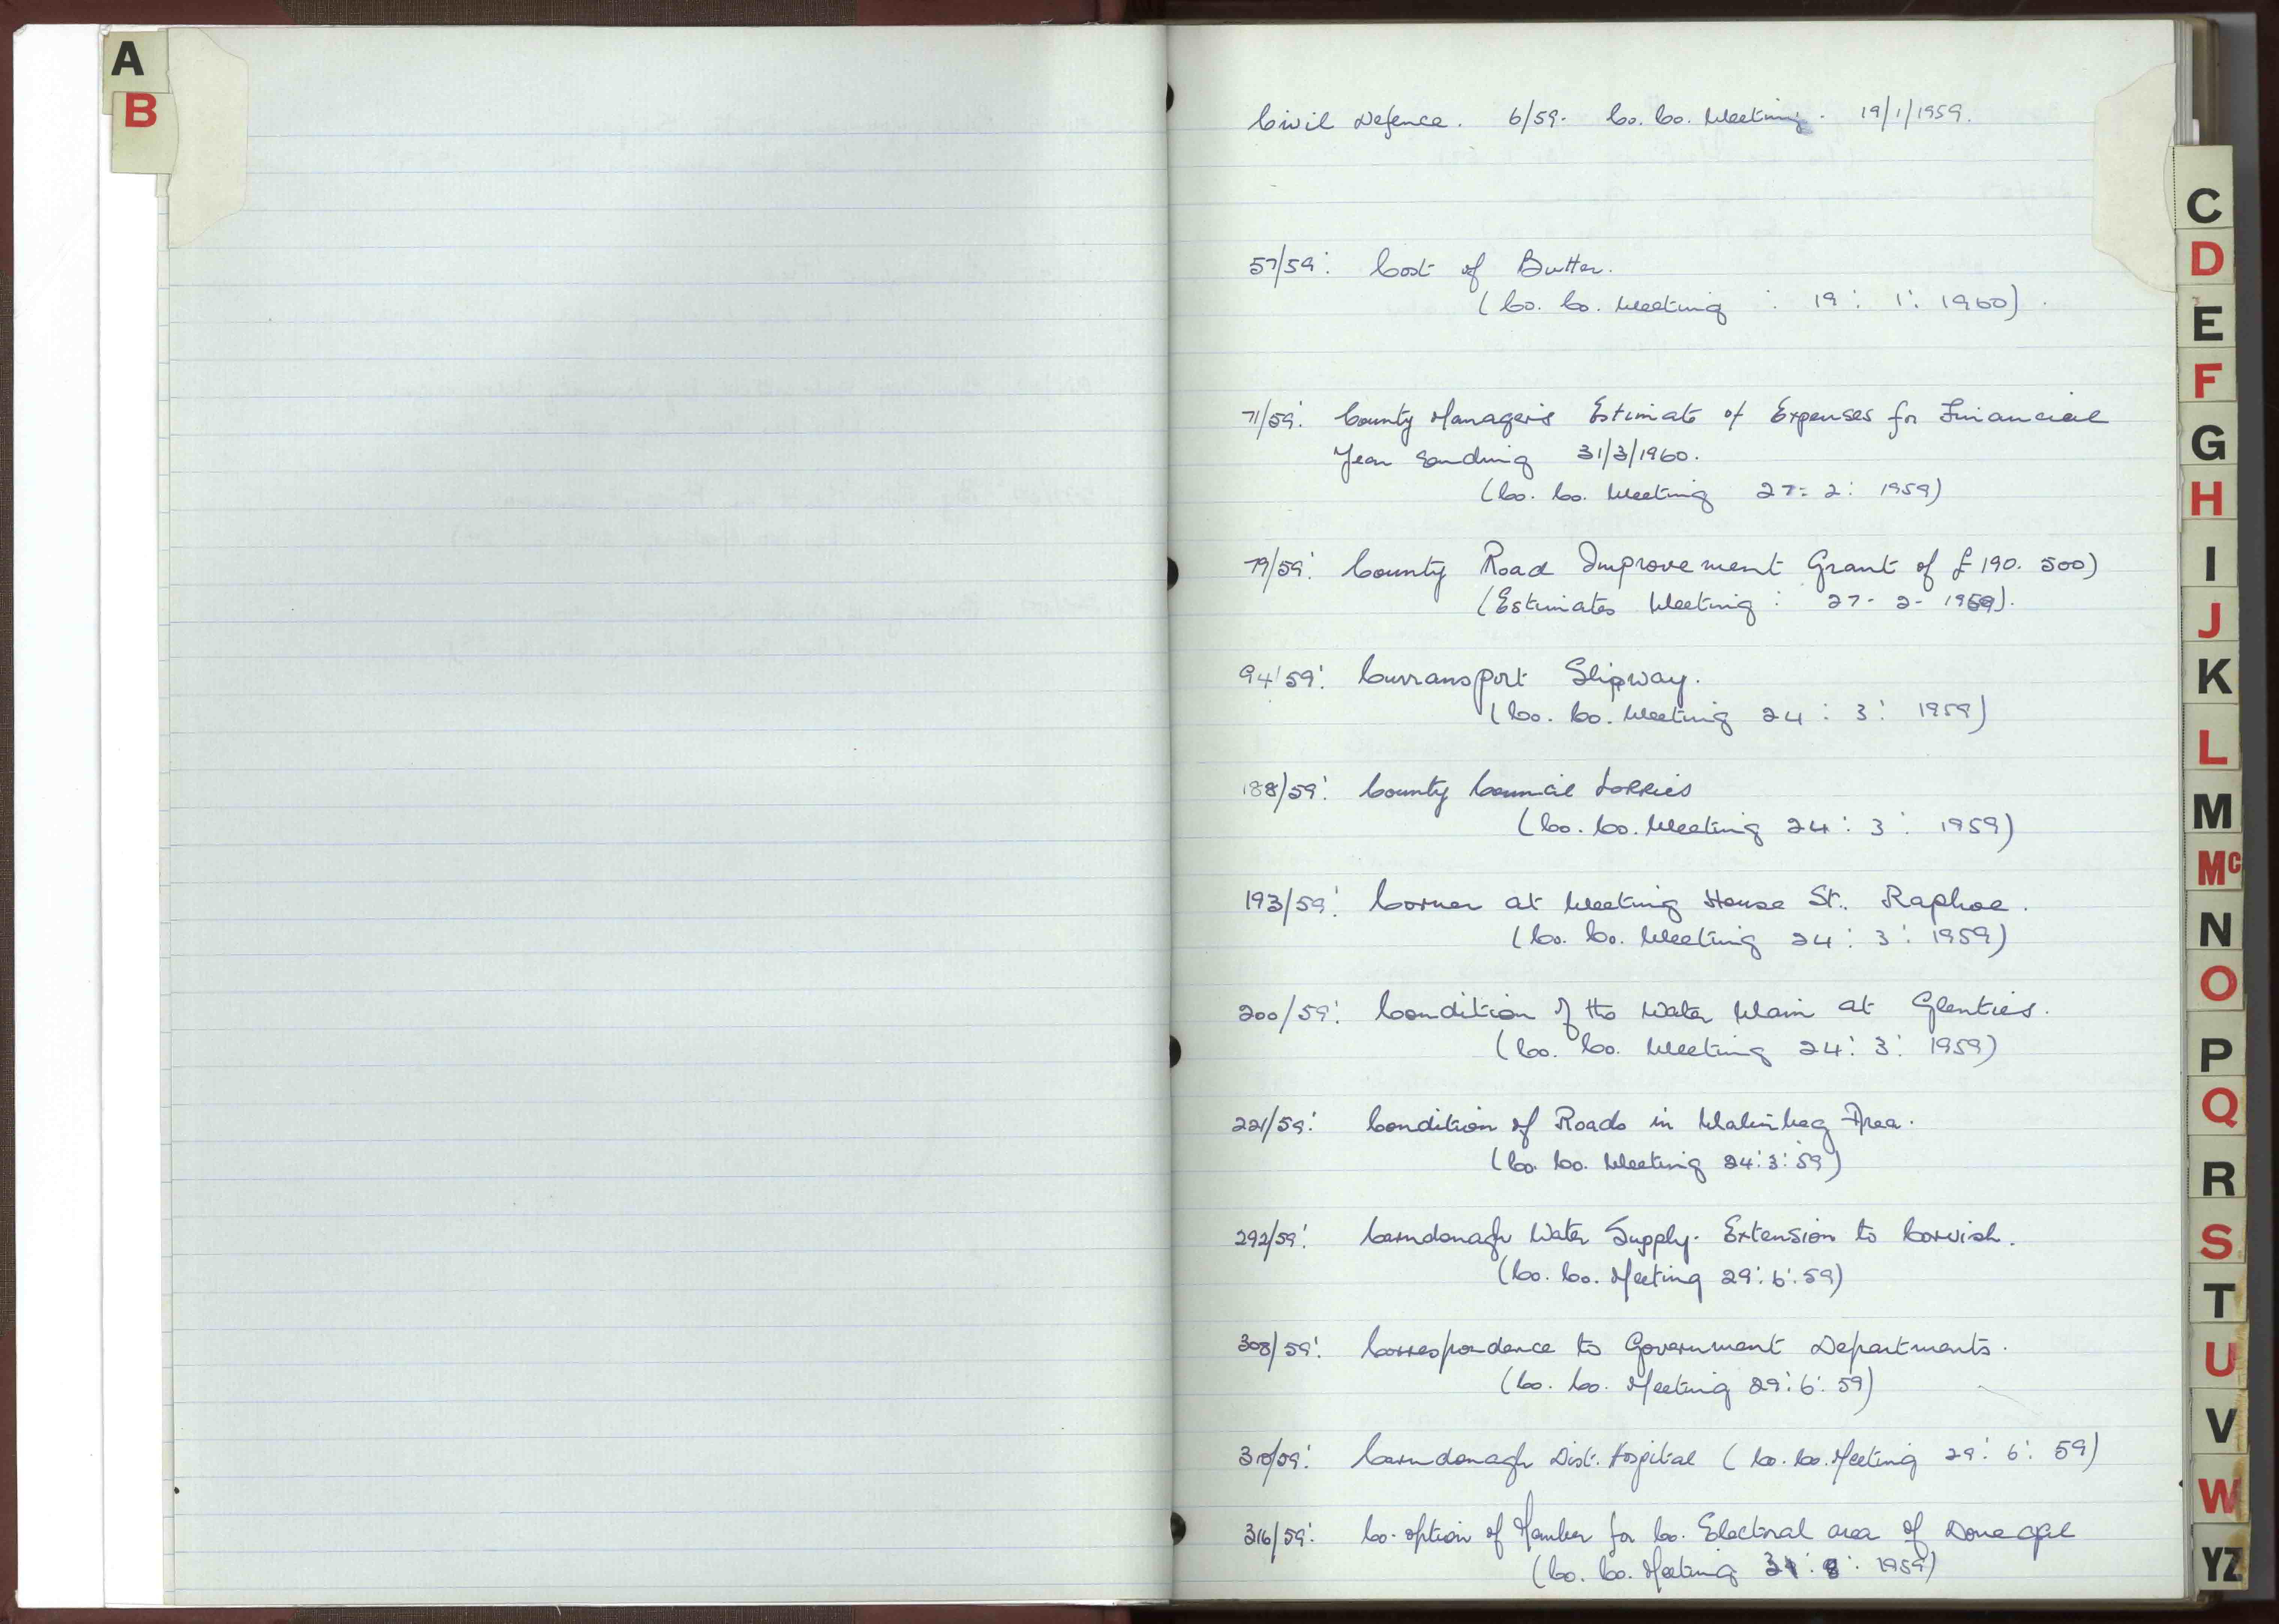 A
B
Civil Defence. 6/59. Co. Co. Meeting. 19/1/1959.
57/59: Cost of Butter.
(Co. Co. Meeting : 19: 1: 1960).
71/59: County Manager's Estimate of Expenses for Financial
Year ending 31/3/1960.
(Co. Co. Meeting 27: 2: 1959)
79/59: County Road Improvement Grant of £190. 500)
(Estimates Meeting : 27- 2- 1959).
94/59: Curransport Slipway.
(Co. Co. Meeting 24: 3: 1959)
188/59: County Council Lorries
(Co. Co. Meeting 24: 3: 1959)
193/59: Corner at Meeting House St. Raphoe.
(Co. Co. Meeting 24: 3: 1959)
200/59: Condition of the Water Main at Glenties.
(Co. Co. Meeting 24: 3: 1959)
221/59: Condition of Roads in Malinbeg Area.
(Co. Co. Meeting 24:3:59)
292/59: Carndonagh Water Supply. Extension to Corvish.
(Co. Co. Meeting 29:6:59)
308/59: Correspondence to Government Departments.
(Co. Co. Meeting 29:6:59)
Carndonagh Dist. Hospital (Co. Co. Meeting 29: 6: 59)
316/59: Co-option of Member for Co. Electoral area of Donegal
(Co. Co. Meeting 1959)
C
D
E
F
G
H
I
J
K
L
M
Mc
N
O
P
Q
R
S
T
U
V
W
YZ